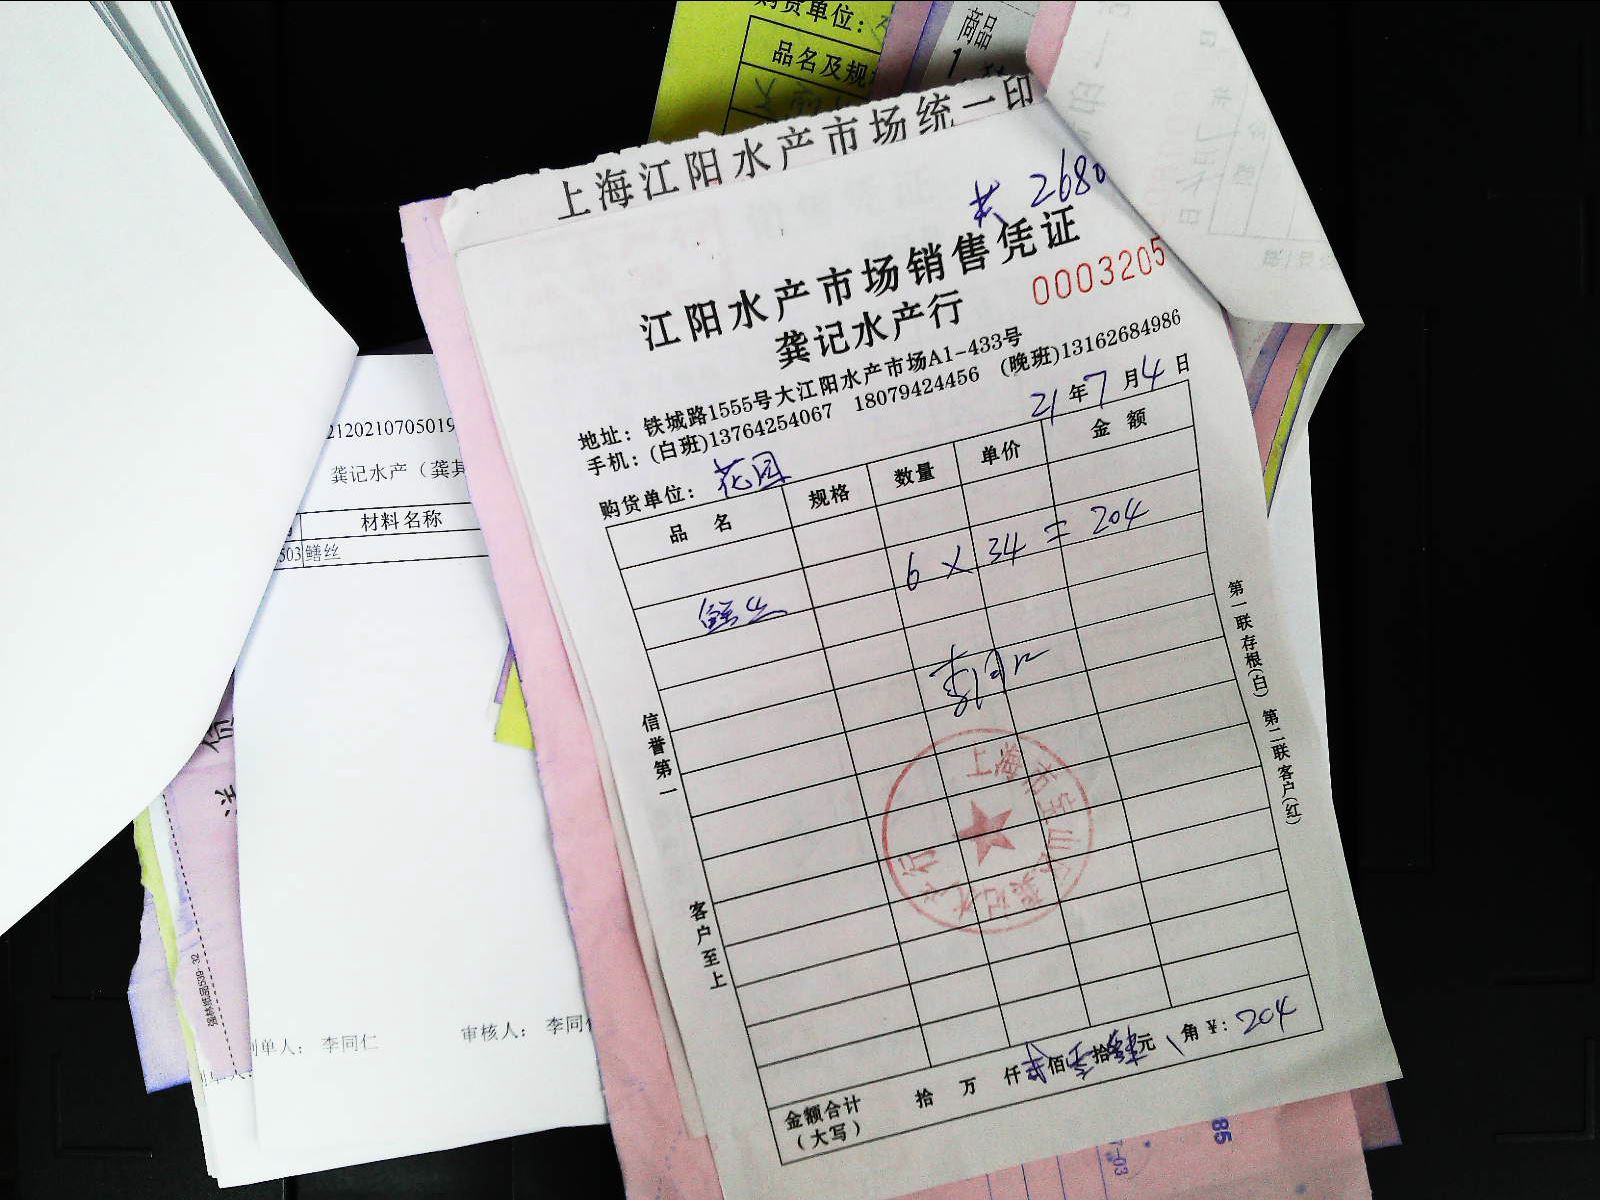 购货单位：
品名及规
商品
1
上海江阳水产市场统一印
共 2680
江阳水产市场销售凭证
龚记水产行
0003205
地址：铁城路1555号大江阳水产市场A1-433号
手机：(白班)13764254067 18079424456 (晚班)13162684986
购货单位：花园
21年7月4日
品 名 规格 数量 单价 金 额
鳝丝 6 × 34 = 204
李同仁
上海市宝山区龚记水产行
信誉第一
客户至上
第一联存根(白) 第二联客户(红)
金额合计(大写) 拾 万 仟 贰佰零拾肆元 角 ¥: 204
2120210705019
龚记水产（龚其
材料名称
503 鳝丝
制单人： 李同仁
审核人： 李同仁
强林纸品539- 32
85
-03